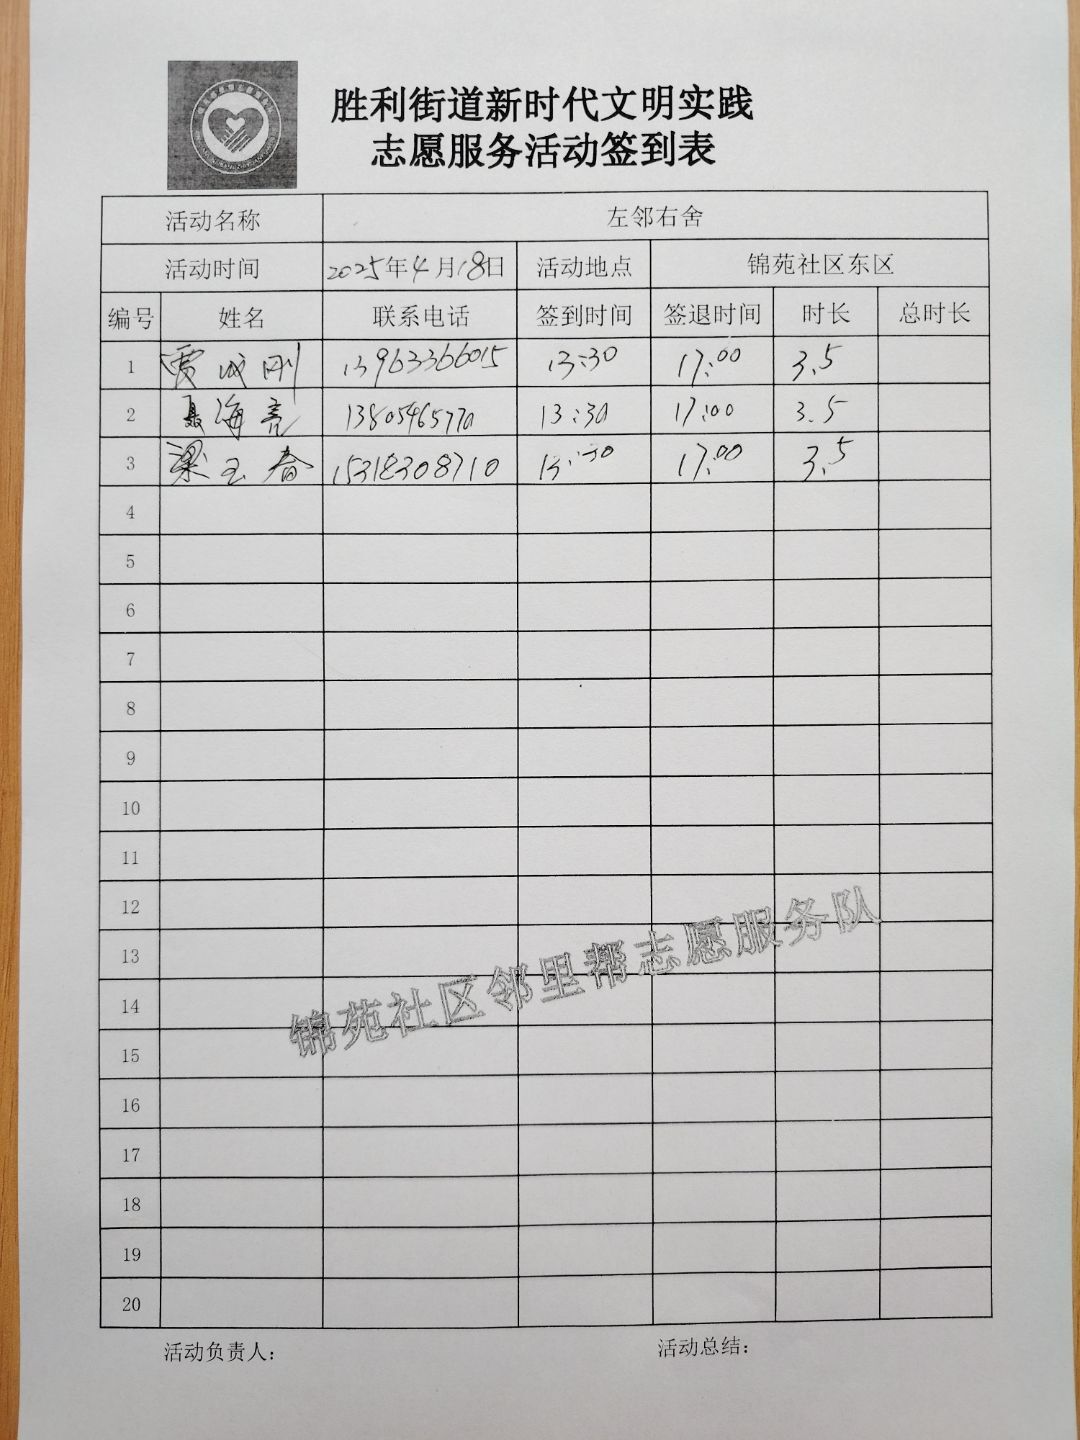 胜利街道新时代文明实践
志愿服务活动签到表
活动名称 左邻右舍
活动时间 2025年4月18日 活动地点 锦苑社区东区
编号 姓名 联系电话 签到时间 签退时间 时长 总时长
1 贾成刚 13963366015 13:30 17:00 3.5
2 聂海亮 13805465770 13:30 17:00 3.5
3 梁玉春 15318308710 13:30 17:00 3.5
4
5
6
7
8
9
10
11
12
13
14
15
16
17
18
19
20
锦苑社区邻里帮志愿服务队
活动负责人： 活动总结：